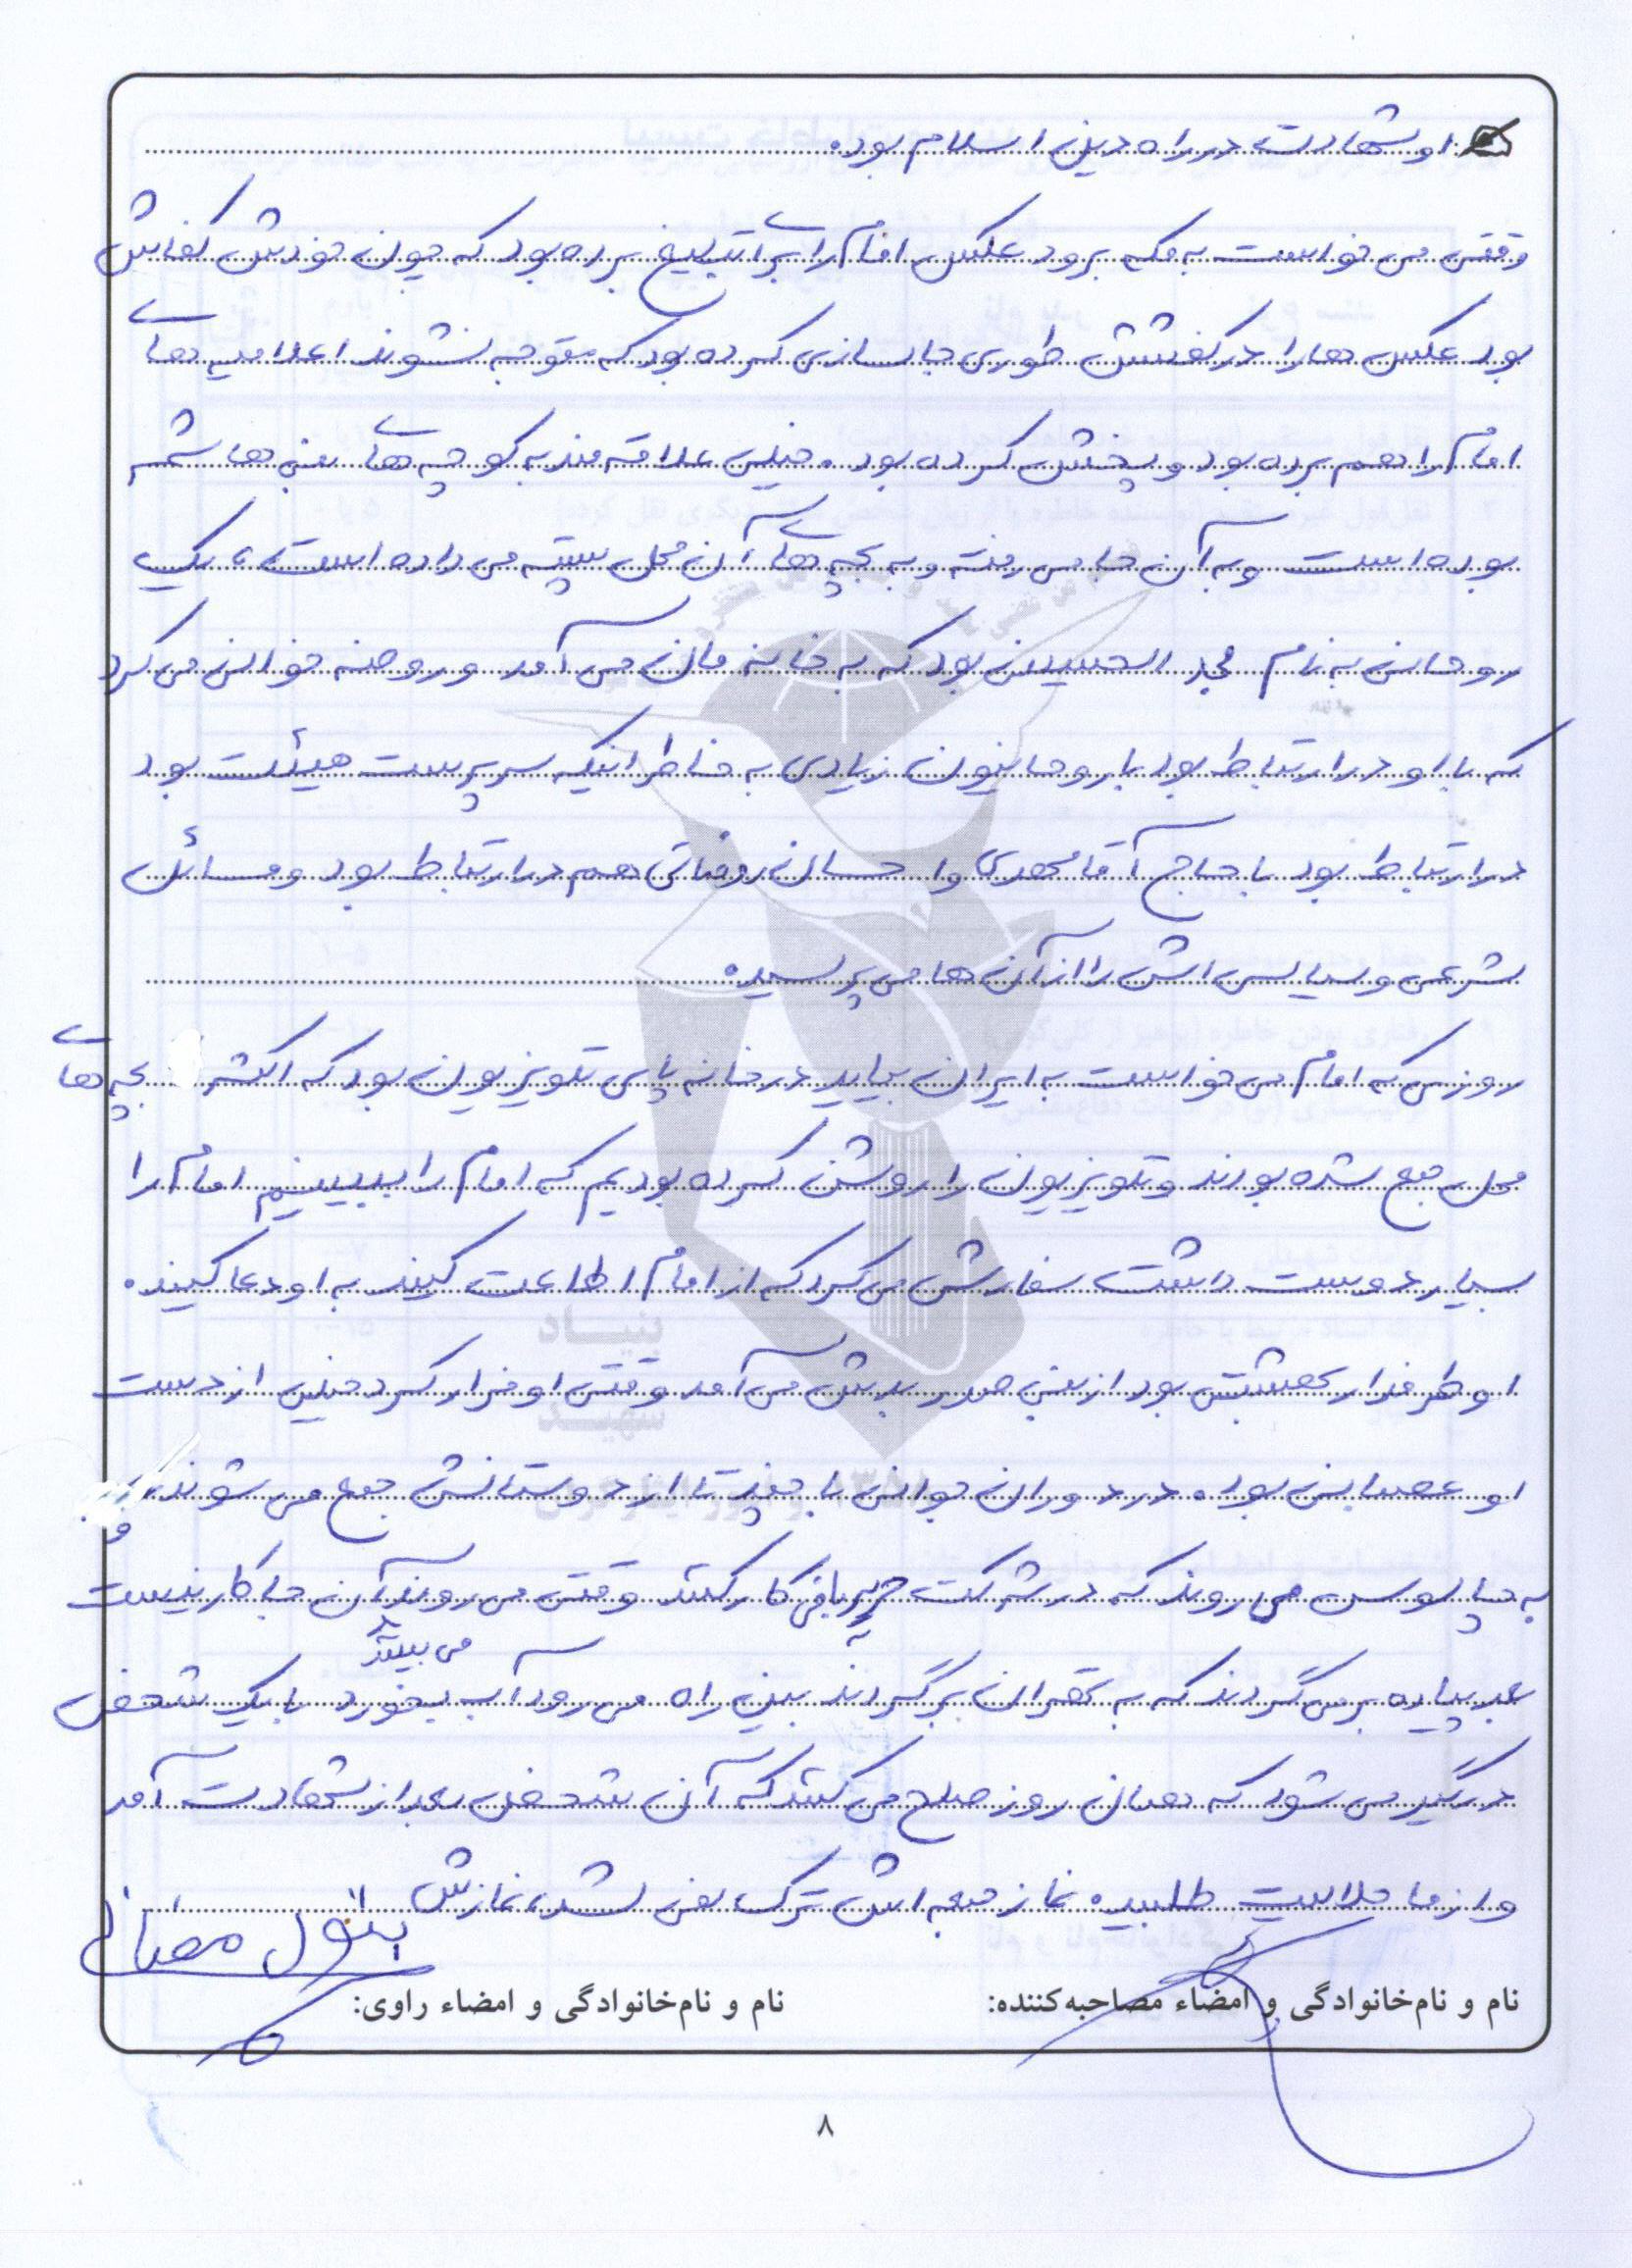 او شهادت در راه دین اسلام بود.
وقتی می خواست به مکه برود عکس امام را برای تبلیغ برده بود که چون خودش کفاش
بود عکس ها را در کفشش طوری جاسازی کرده بود که متوجه نشوند اعلامیه های
امام را هم برده بود و پخش کرده بود. خیلی علاقه مند به کوچه های بنی هاشم
بوده است و به آن جا می رفته و به بچه های آن محل پسته می داده است، یک
روحانی به نام مجد الحسینی بود که به خانه مان می آمد و روضه خوانی می کرد
که با او در ارتباط بود با روحانیون زیادی به خاطر اینکه سرپرست هیئت بود
در ارتباط بود با حاج آقا مهدی و احسان روضاتی هم در ارتباط بود و مسائل
شرعی و سیاسی اش را از آن ها می پرسید.
روزی که امام می خواست به ایران بیاید در خانه پای تلویزیون بود که اکثر بچه های
محل جمع شده بودند و تلویزیون را روشن کرده بودیم که امام را ببینیم امام را
بسیار دوست داشت سفارش می کرد که از امام اطاعت کنید به او دعا کنید.
او طرفدار بهشتی بود از بنی صدر بدش می آمد وقتی او فرار کرد خیلی از دست
او عصبانی بود. در دوران جوانی با چند تا از دوستانش جمع می شوند و
به چالوس می روند که در شرکت حریربافی کار کنند وقتی می روند می بینند آن جا کار نیست
بعد پیاده برمی گردند که به تهران برگردند بین راه می رود آب بخورد با یک شخص
درگیر می شود که همان روز صلح می کنند که آن شخص بعد از شهادت آمد
و از ما حلالیت طلبید. نماز جمعه اش ترک نمی شد، نمازش
بتول
نام و نام‌خانوادگی و امضاء مصاحبه‌کننده: نام و نام‌خانوادگی و امضاء راوی:
۸